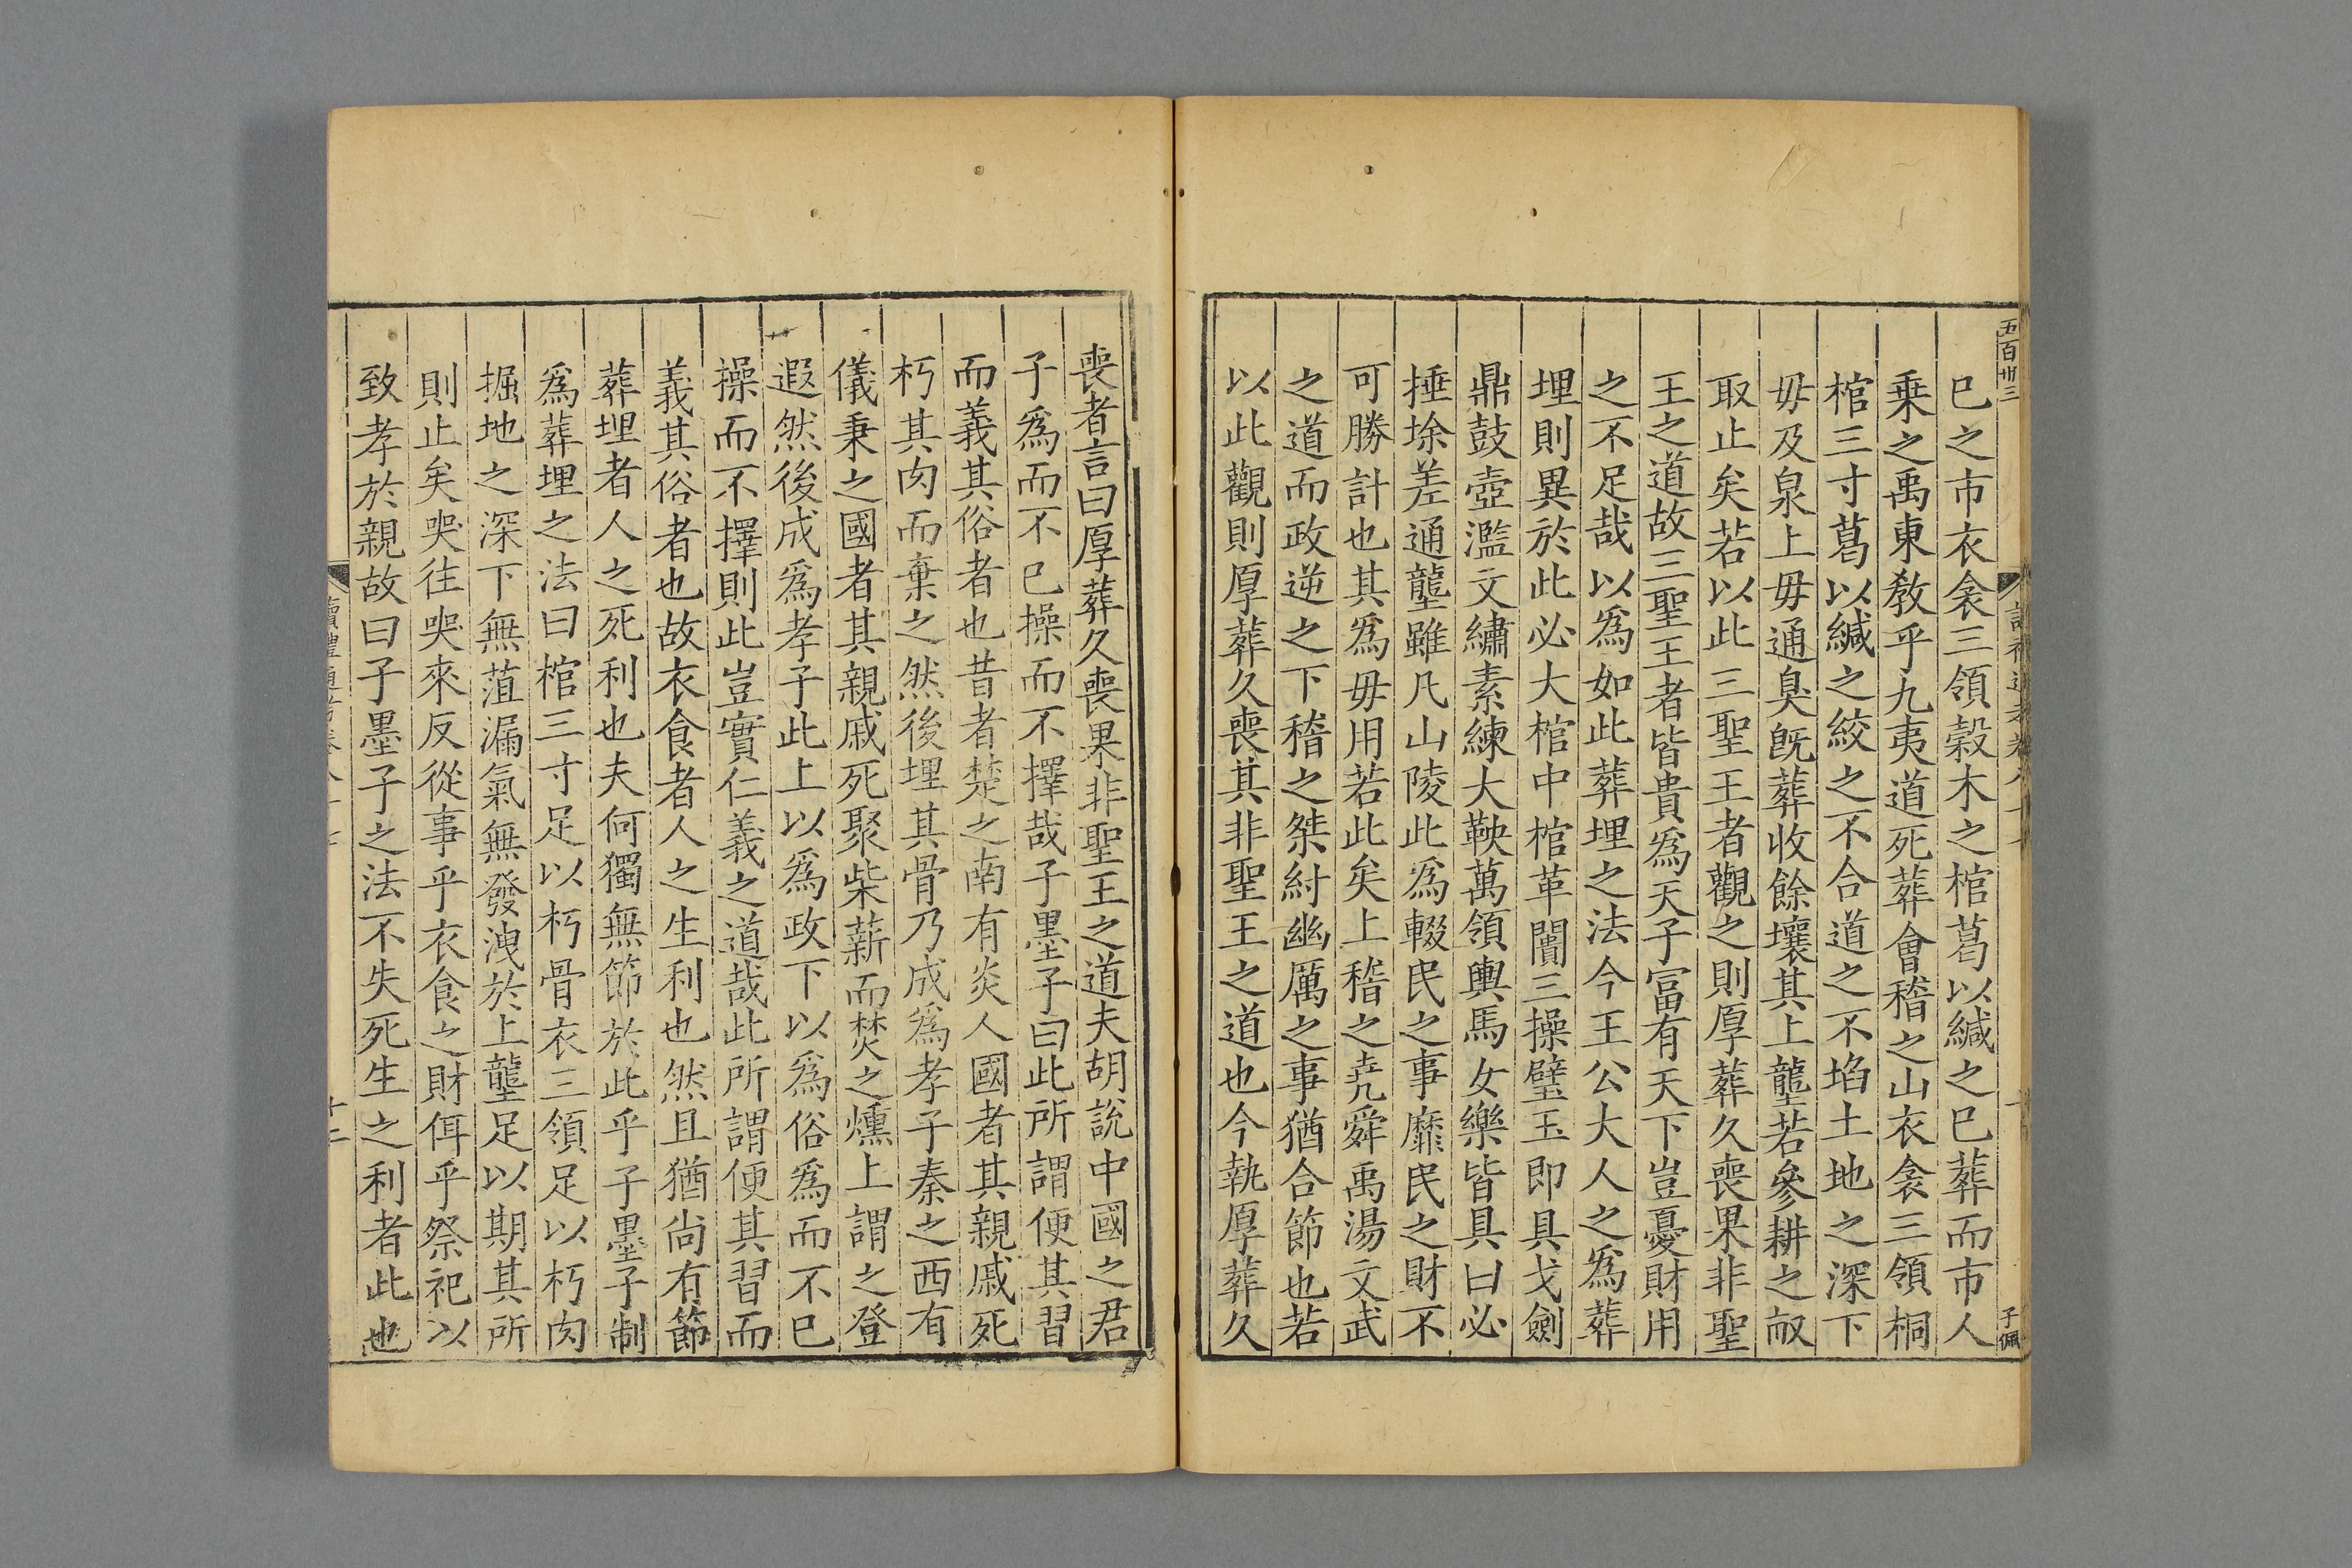 五百卅三
子佩
已之市衣衾三領穀木之棺葛以緘之已葬而市人
乗之禹東敎乎九夷道死葬會稽之山衣衾三領桐
棺三寸葛以緘之絞之不合道之不埳土地之深下
毋及泉上毋通臭旣葬收餘壤其上壟若參耕之畝
取止矣若以此三聖王者觀之則厚葬久喪果非聖
王之道故三聖王者皆貴爲天子富有天下豈憂財用
之不足哉以爲如此葬埋之法今王公大人之爲葬
埋則異於此必大棺中棺革闠三操璧玉即具戈劍
鼎鼓壺濫文繡素練大鞅萬領輿馬女樂皆具曰必
捶塗差通壟雖凡山陵此爲輟民之事靡民之財不
可勝計也其爲毋用若此矣上稽之堯舜禹湯文武
之道而政逆之下稽之桀紂幽厲之事猶合節也若
以此觀則厚葬久喪其非聖王之道也今執厚葬久
喪者言曰厚葬久喪果非聖王之道夫胡說中國之君
子爲而不已操而不擇哉子墨子曰此所謂便其習
而義其俗者也昔者楚之南有炎人國者其親戚死
朽其肉而棄之然後埋其骨乃成爲孝子秦之西有
儀秉之國者其親戚死聚柴薪而焚之燻上謂之登
遐然後成爲孝子此上以爲政下以爲俗爲而不已
操而不擇則此豈實仁義之道哉此所謂便其習而
義其俗者也故衣食者人之生利也然且猶尚有節
葬埋者人之死利也夫何獨無節於此乎子墨子制
爲葬埋之法曰棺三寸足以朽骨衣三領足以朽肉
掘地之深下無菹漏氣無發洩於上壟足以期其所
則止矣哭往哭來反從事乎衣食之財佴乎祭祀以
致孝於親故曰子墨子之法不失死生之利者此也